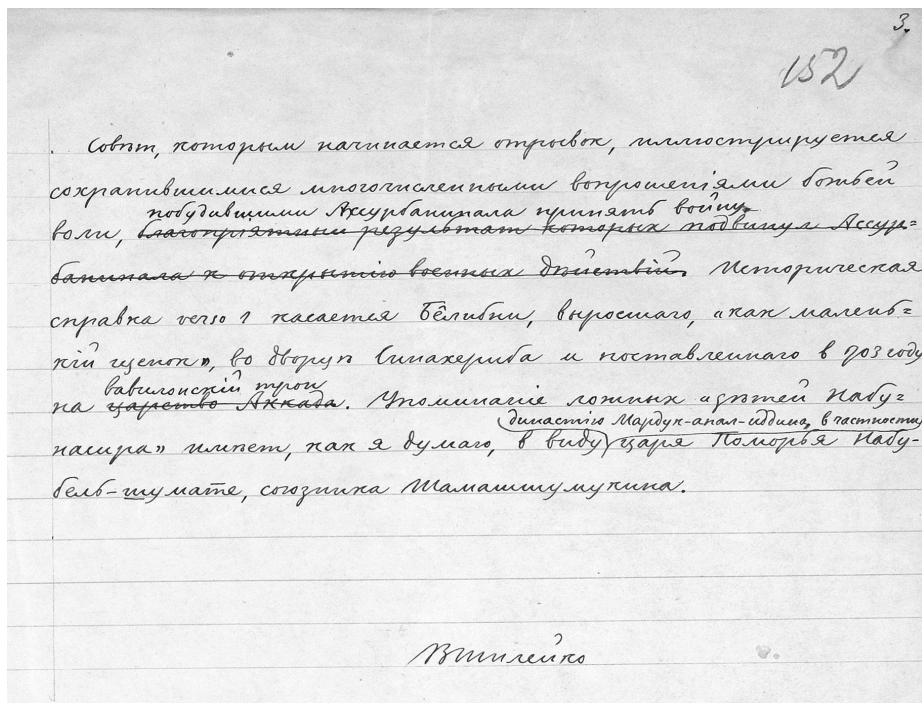 3.
152
Совѣт, которым начинается отрывок, иллюстрируется
сохранившимися многочисленными вопрошеніями божьей
побудившими Ассурбанипала принять войну.
воли, благопріятный результат которых подвинул Ассур=
банипала к открытію военных дѣйствій. Историческая
справка verso 1 касается Бêлибни, выросшаго, „как малень=
кій щенок", во дворцѣ Синахериба и поставленнаго в 703 году
вавилонскій трон
на царство Аккада. Упоминаніе ложных „дѣтей Набу=
династію Мардук-апал-иддина, в частности
насира" имѣет, как я думаю, в виду царя Поморья Набу-
бель-шумате, союзника Шамашшумукина.
ВШилейко